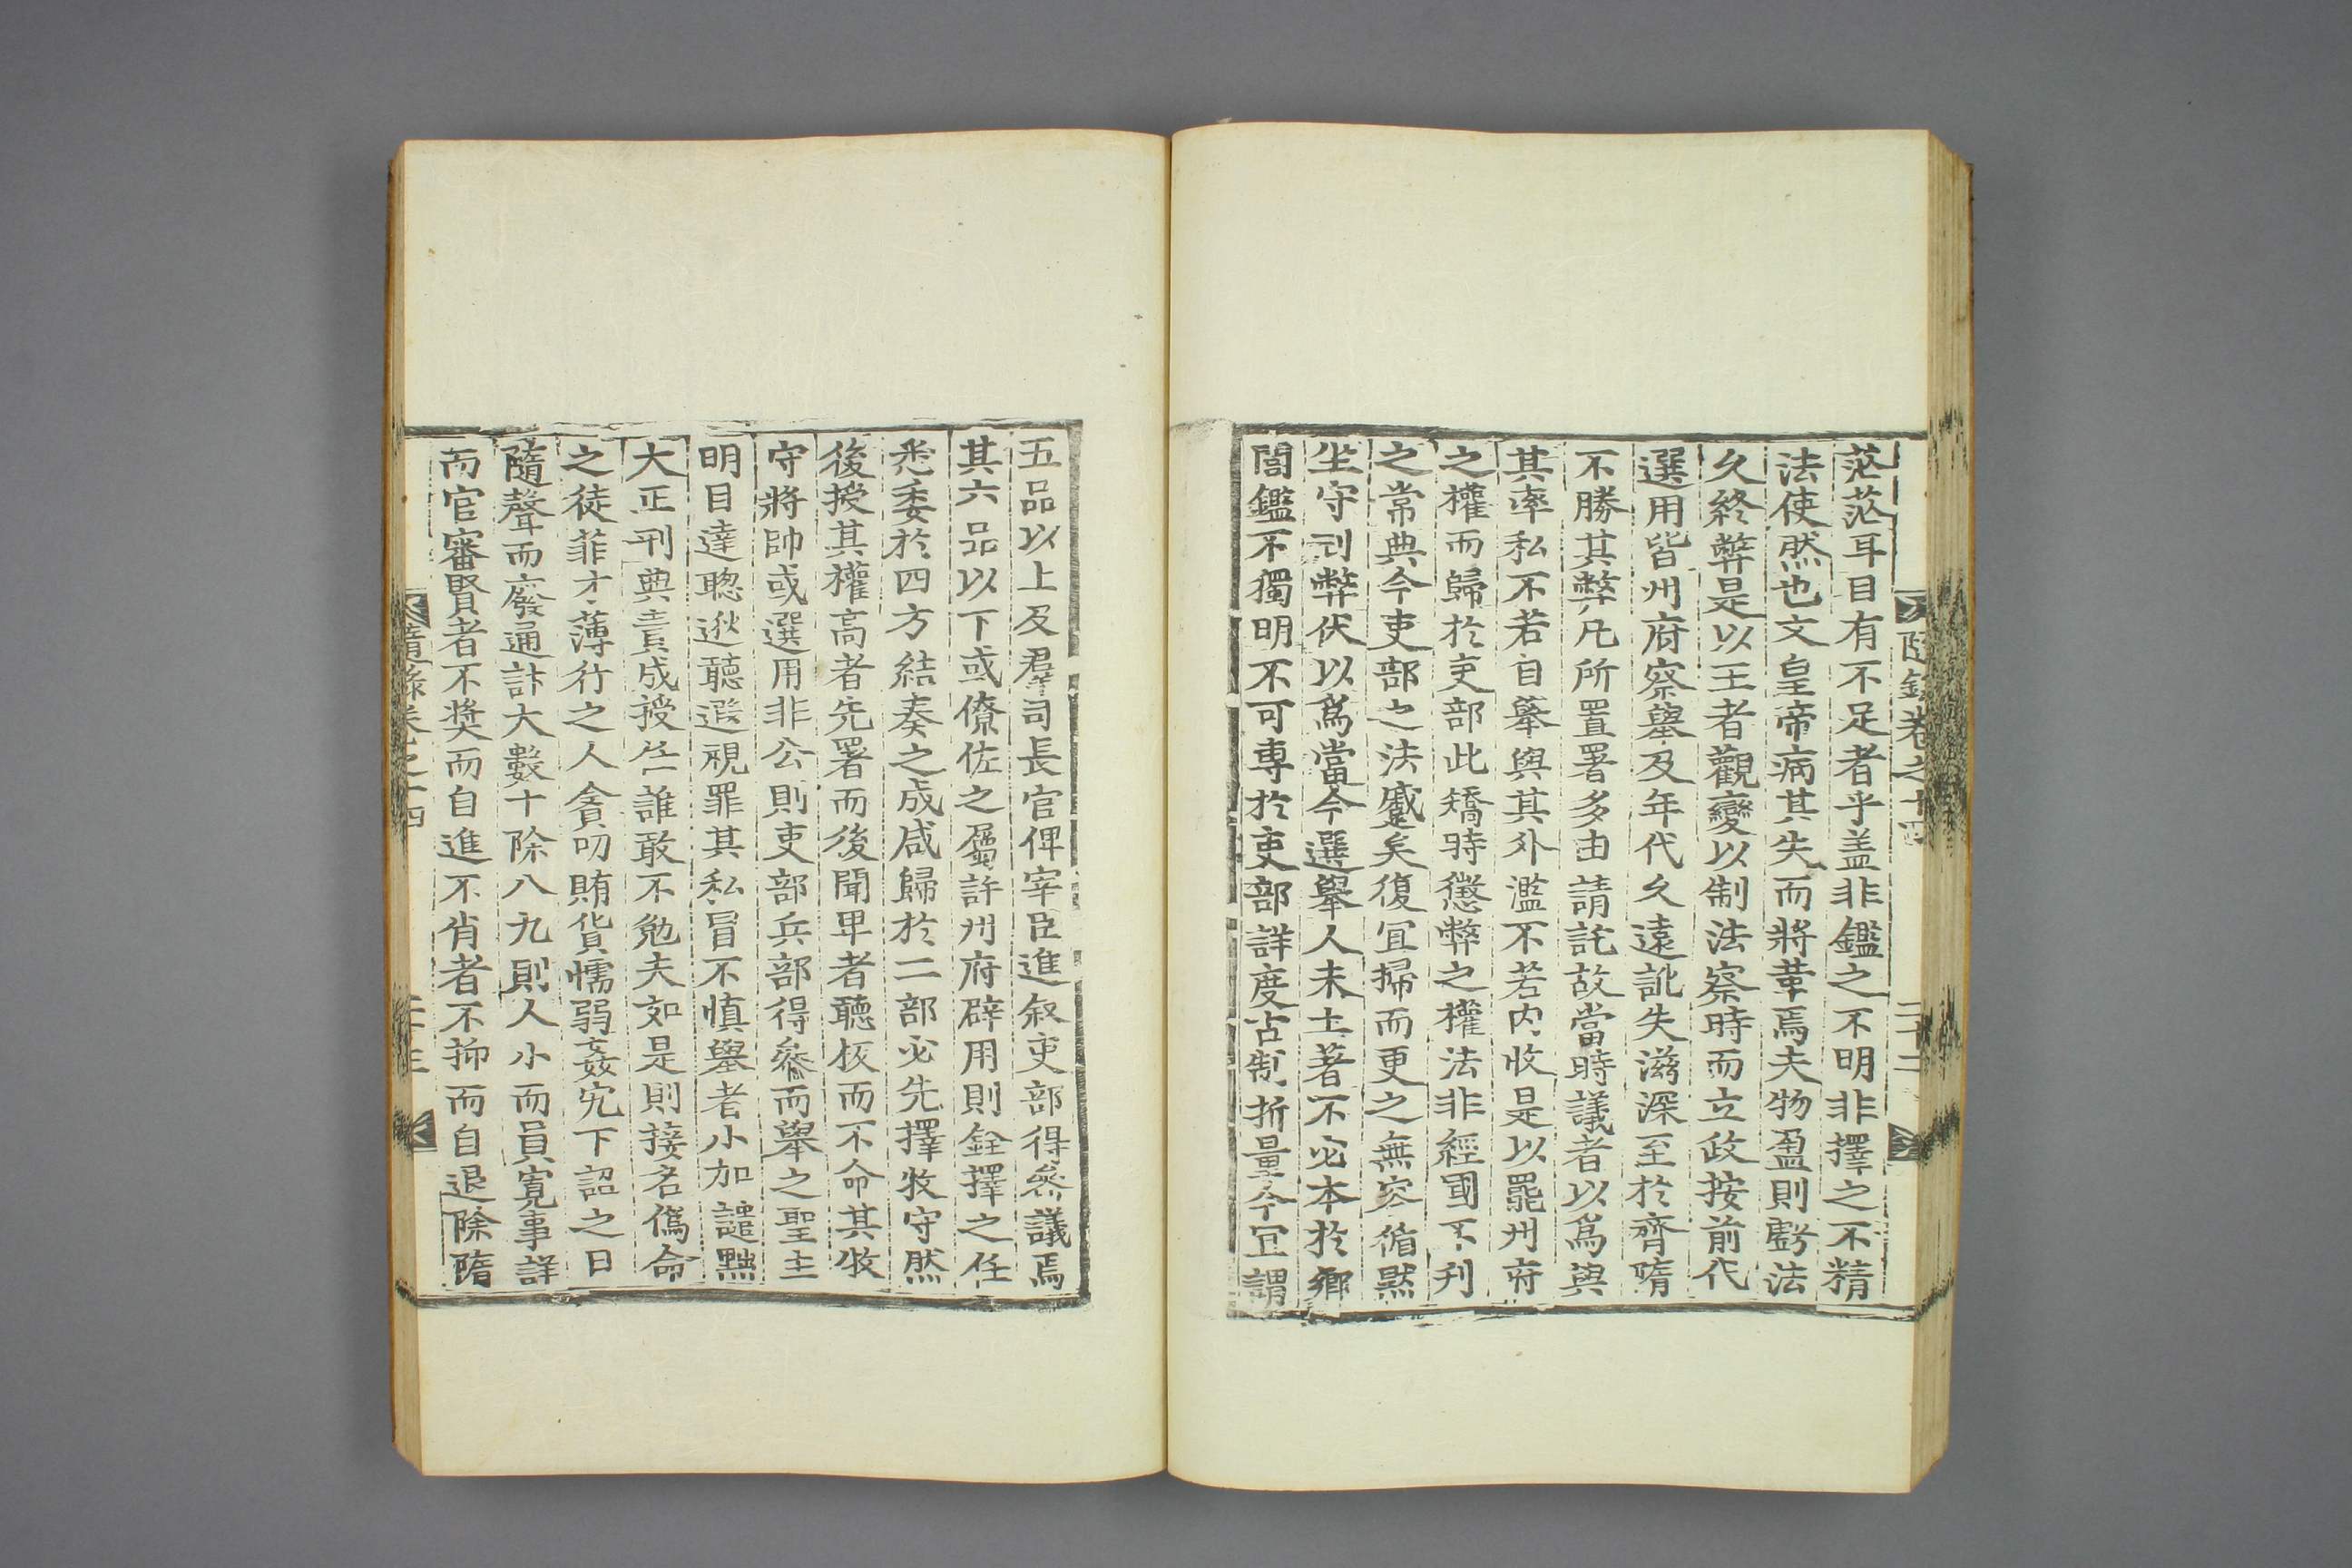 隨錄卷之十四 二十二
茫茫耳目有不足者乎盖非鑑之不明非擇之不精
法使然也文皇帝病其失而將革焉夫物盈則虧法
久終弊是以王者觀變以制法察時而立政按前代
選用皆州府察擧及年代久遠訛失滋深至於齊隋
不勝其弊凡所置署多由請託故當時議者以爲與
其率私不若自擧與其外濫不若内收是以罷州府
之權而歸於吏部此矯時懲弊之權法非經國不刋
之常典今吏部之法蹙矣復冝掃而更之無容循默
坐守刓弊伏以爲當今選擧人未土著不必本於鄉
閭鑑不獨明不可專於吏部詳度古制折量今冝謂
五品以上及羣司長官俾宰臣進叙吏部得叅議焉
其六品以下或僚佐之屬許州府辟用則銓擇之任
悉委於四方結奏之成咸歸於二部必先擇牧守然
後授其權高者先署而後聞卑者聽板而不命其牧
守將帥或選用非公則吏部兵部得叅而擧之聖主
明目達聰逖聽遐視罪其私冒不慎擧者小加譴黜
大正刑典責成授任誰敢不勉夫如是則接名僞命
之徒菲才薄行之人貪叨賄貨懦弱姦宄下詔之日
隨聲而廢通計大數十除八九則人小而員寬事詳
而官審賢者不獎而自進不肖者不抑而自退除隋
隨錄卷之十四 二十三